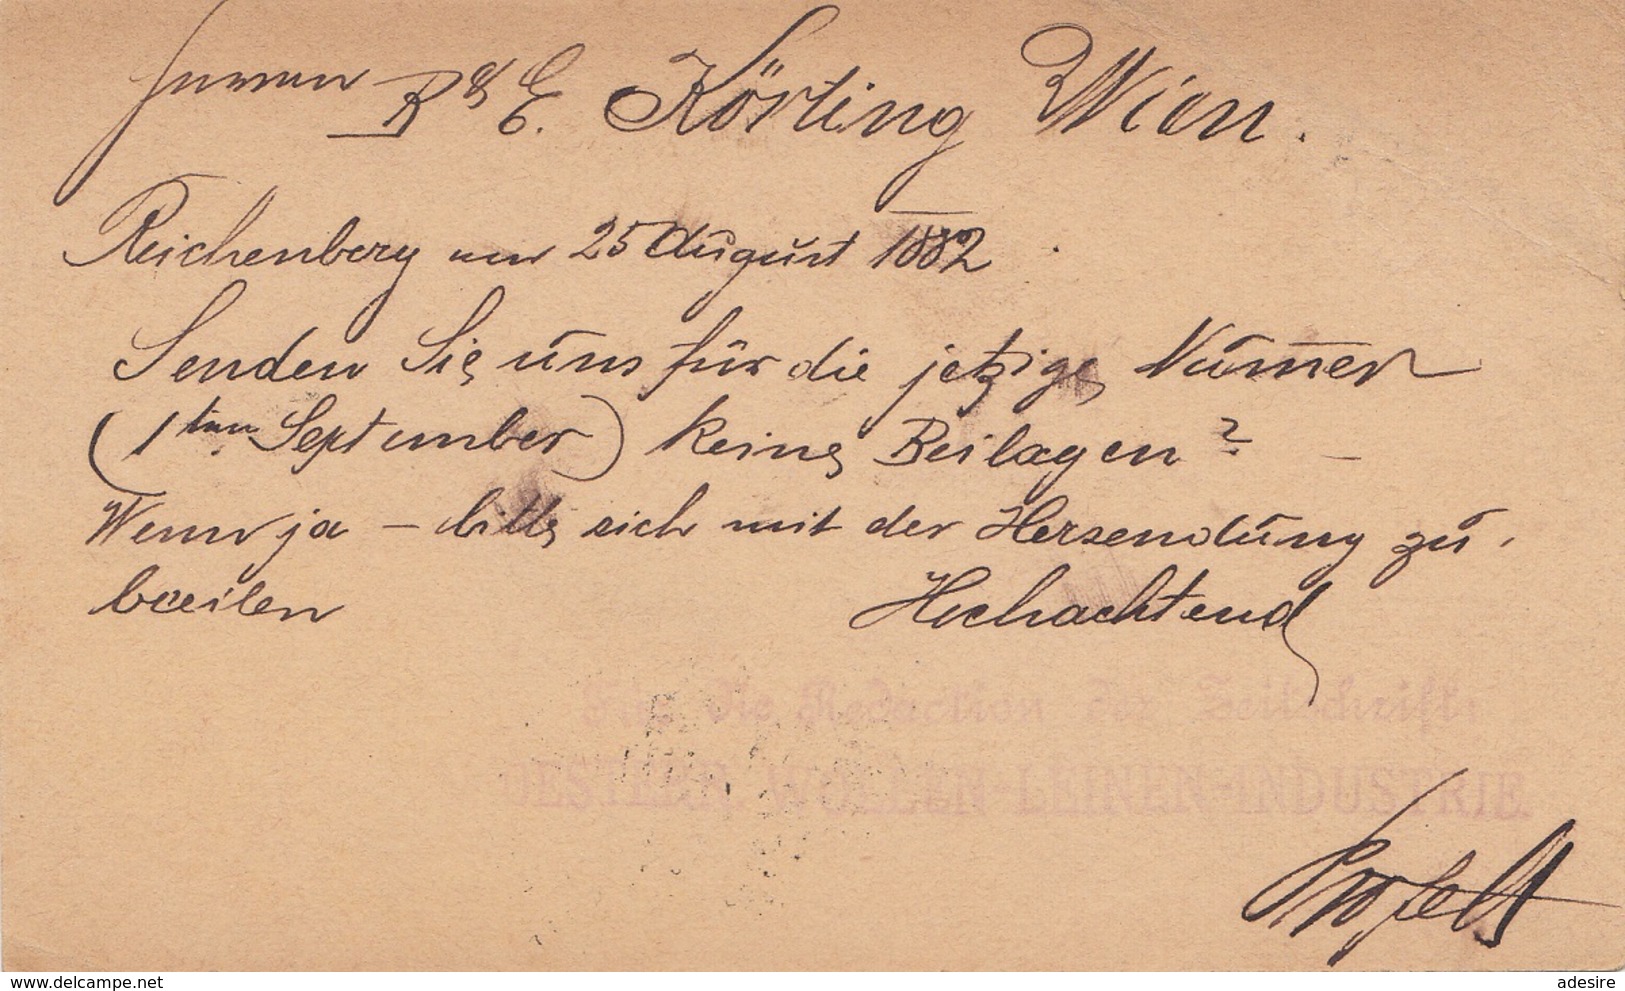 Herren B & E. Körting Wien.
Reichenberg am 25 August 1882
Senden Sie uns für die jetzige Numer
(1ten September) keine Beilagen? –
Wenn ja – bitte sich mit der Hersendung zu
beeilen Hochachtend
Für die Redaction der Zeitschrift:
OESTERR. WOLLEN- LEINEN-INDUSTRIE.
www.delcampe.net
adesire